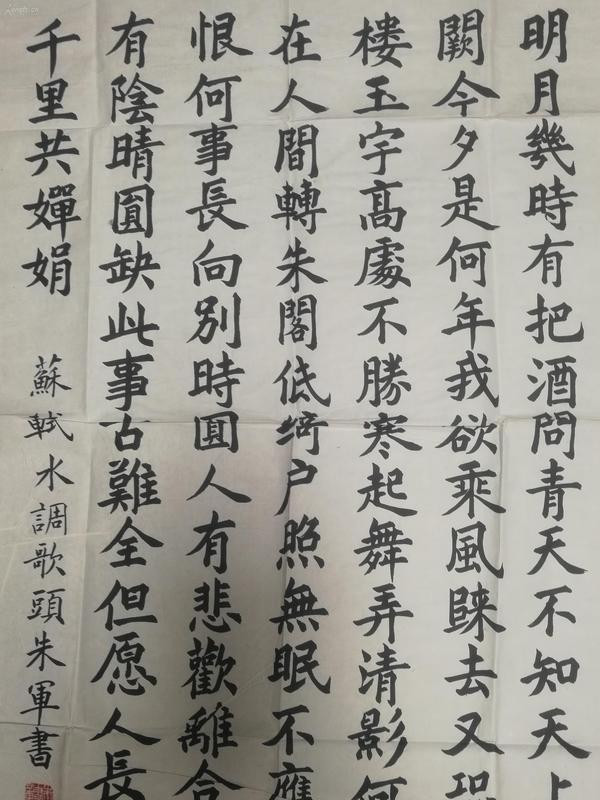 明月幾時有把酒問青天不知天上
闕今夕是何年我欲乘風歸去又恐
楼玉宇高處不勝寒起舞弄清影何
在人間轉朱閣低綺户照無眠不應
恨何事長向别時圓人有悲歡離合
有陰晴圓缺此事古難全但愿人長
千里共嬋娟
蘇軾水調歌頭朱軍書